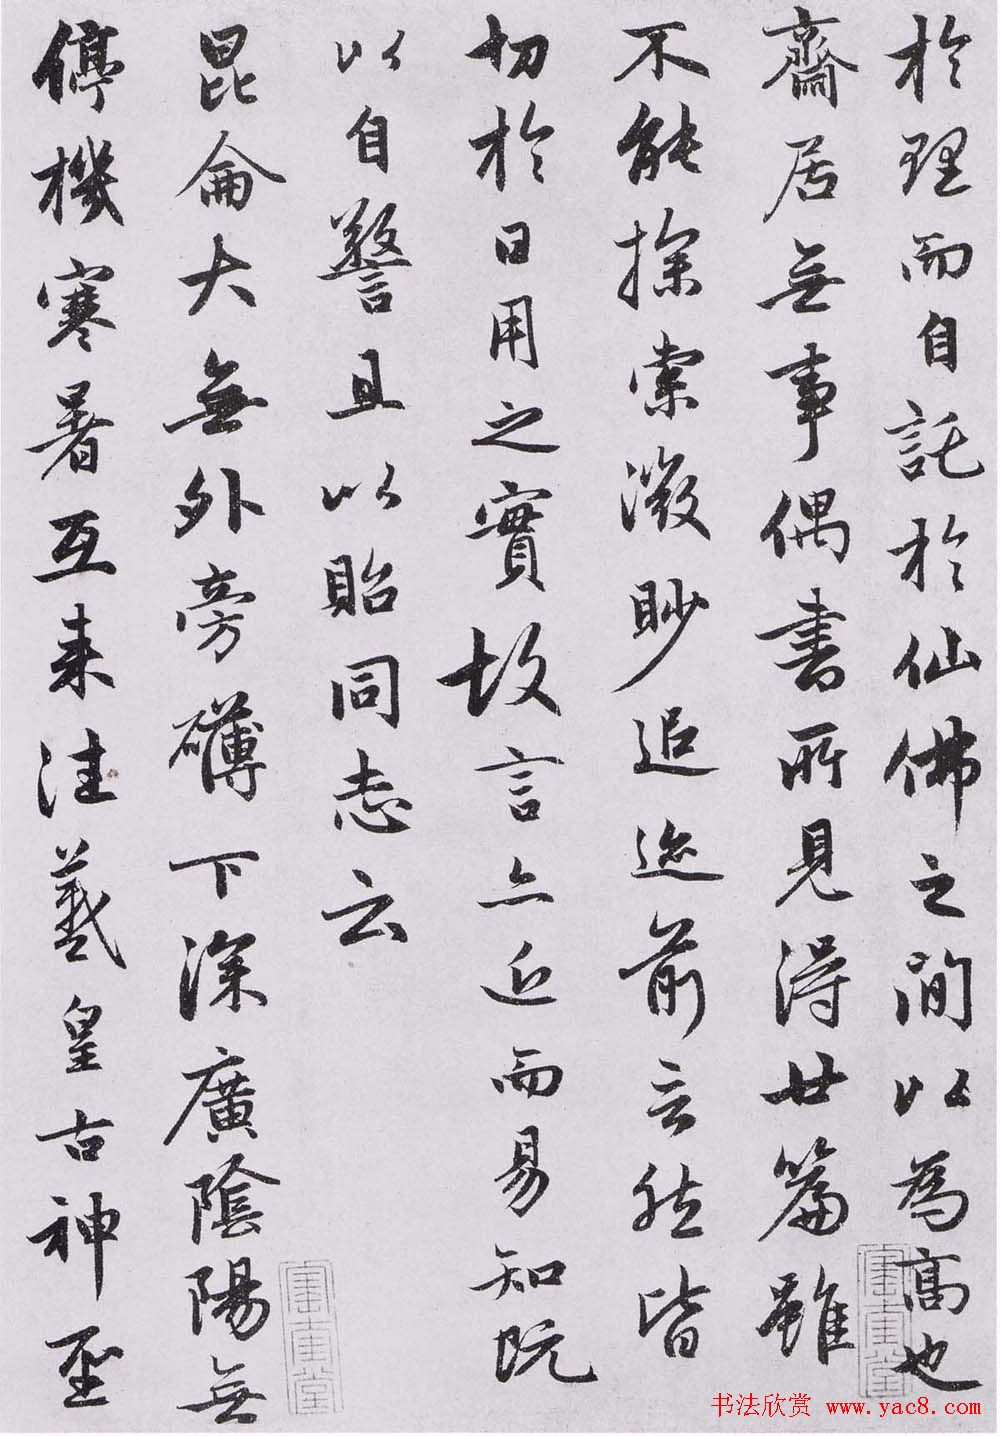 於理而自託於仙佛之間以為高也
齋居無事偶書所見得廿篇雖
不能探索微眇追迹前言然皆
切於日用之實故言亦近而易知既
以自警且以貽同志云
昆侖大無外旁礴下深廣陰陽無
停機寒暑互来往羲皇古神聖
书法欣赏 www.yac8.com